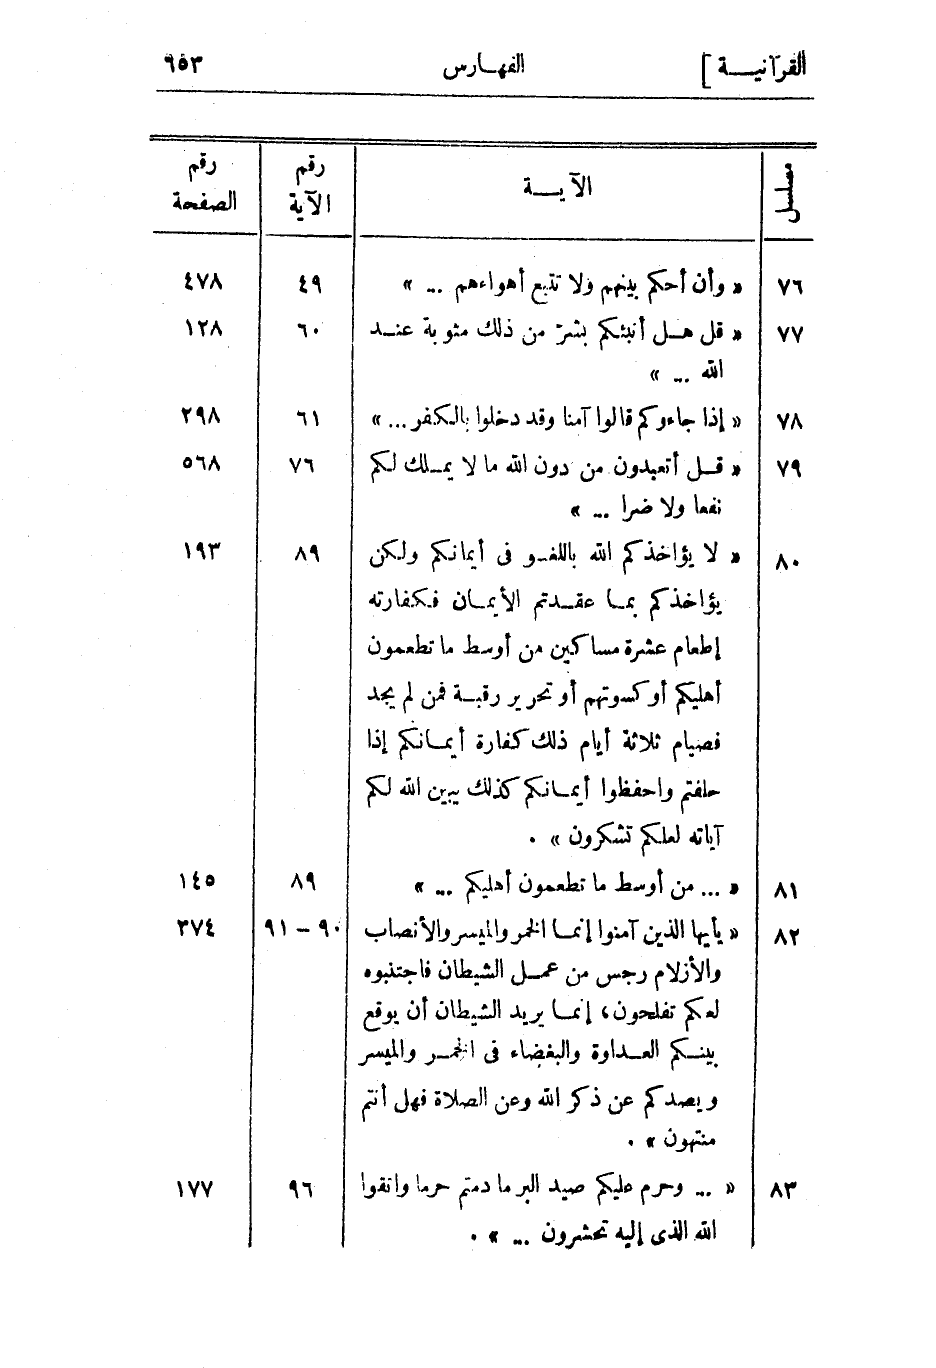 القرآنيـــة ] الفهــارس ٦٥٣
مسلسل الآيـــة رقم الآية رقم الصفحة
٧٦ « وأن أحكم بينهم ولا تتبع أهواءهم ... » ٤٩ ٤٧٨
٧٧ « قل هــل أنبئكم بشرّ من ذلك مثوبة عنــد ٦٠ ١٢٨
الله ... »
٧٨ « إذا جاءوكم قالوا آمنا وقد دخلوا بالكفر ... » ٦١ ٢٩٨
٧٩ « قــل أتعبدون من دون الله ما لا يمــلك لكم ٧٦ ٥٦٨
نفعا ولا ضرا ... »
٨٠ « لا يؤاخذكم الله باللغــو فى أيمانكم ولكن ٨٩ ١٩٣
يؤاخذكم بمــا عقــدتم الأيمــان فكفارته
إطعام عشرة مساكين من أوسط ما تطعمون
أهليكم أو كسوتهم أو تحرير رقبــة فمن لم يجد
فصيام ثلاثة أيام ذلك كفارة أيمــانكم إذا
حلفتم واحفظوا أيمــانكم كذلك يبين الله لكم
آياته لعلكم تشكرون » .
٨١ « ... من أوسط ما تطعمون أهليكم ... » ٨٩ ١٤٥
٨٢ « يأيها الذين آمنوا إنمــا الخمر والميسر والأنصاب ٩٠ – ٩١ ٣٧٤
والأزلام رجس من عمــل الشيطان فاجتنبوه
لعلكم تفلحون، إنمــا يريد الشيطان أن يوقع
بينــكم العــداوة والبغضاء فى الخمــر والميسر
ويصدكم عن ذكر الله وعن الصلاة فهل أنتم
منتهون » .
٨٣ « ... وحرم عليكم صيد البر ما دمتم حرما واتقوا ٩٦ ١٧٧
الله الذى إليه تحشرون ... » .